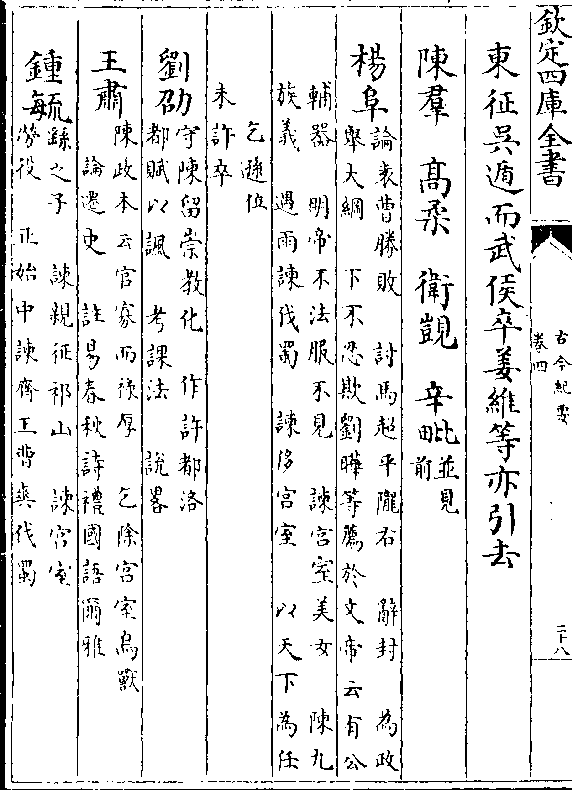 欽定四庫全書
古今紀要
卷四
二十八
東征吳遁而武侯卒姜維等亦引去
陳羣　髙柔　衛覬　辛毗並見前
楊阜論袁曹勝敗　討馬超平隴右　辭封　為政
舉大綱　下不忍欺劉曄等薦於文帝云有公
輔器　明帝不法服不見　諫宮室美女　陳九
族義　遇雨諫伐蜀　諫侈宮室　以天下為任
乞遜位
未許卒
劉劭守陳留崇教化　作許都洛
都賦以諷　考課法　說畧
王肅陳政本云官寡而祿厚　乞除宮室鳥獸
論遷史　註易春秋詩禮國語爾雅
鍾毓繇之子　諫親征祁山　諫宮室
勞役　正始中諫齊王曹爽伐蜀